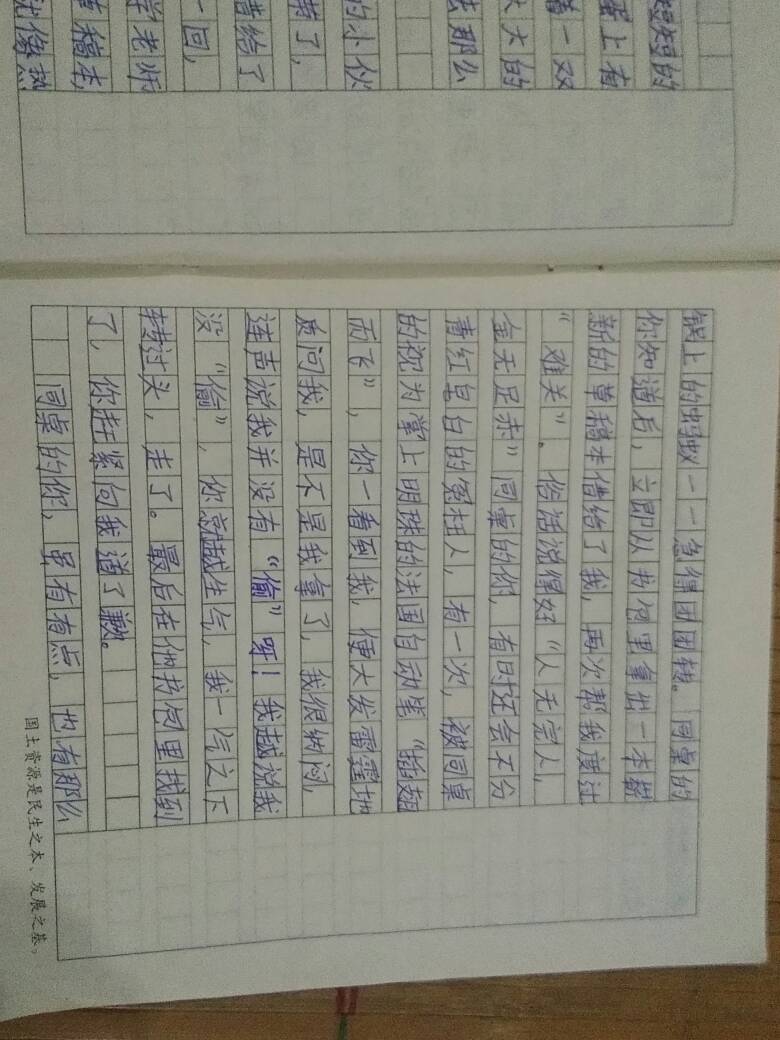 短短的
蛋上有
着一双
大大的
法那么
的小伙
带了，
借给了
一回，
学老师
草稿本，
就像热
锅上的蚂蚁一一急得团团转。同桌的
你知道后，立即从书包里拿出一本崭
新的草稿本借给了我，再次帮我度过
“难关”。俗话说得好“人无完人，
金无足赤”同桌的你，有时还会不分
青红皂白的冤枉人，有一次，被同桌
的视为掌上明珠的法国自动笔“插翅
而飞”，你一看到我，便大发雷霆地
质问我，是不是我拿了，我很纳闷，
连声说我并没有“偷”呀！我越说我
没“偷”，你就越生气，我一气之下
转过头，走了。最后在他书包里找到
了，你赶紧向我道了歉。
同桌的你，虽有有点，也有那么
国土资源是民生之本、发展之基。